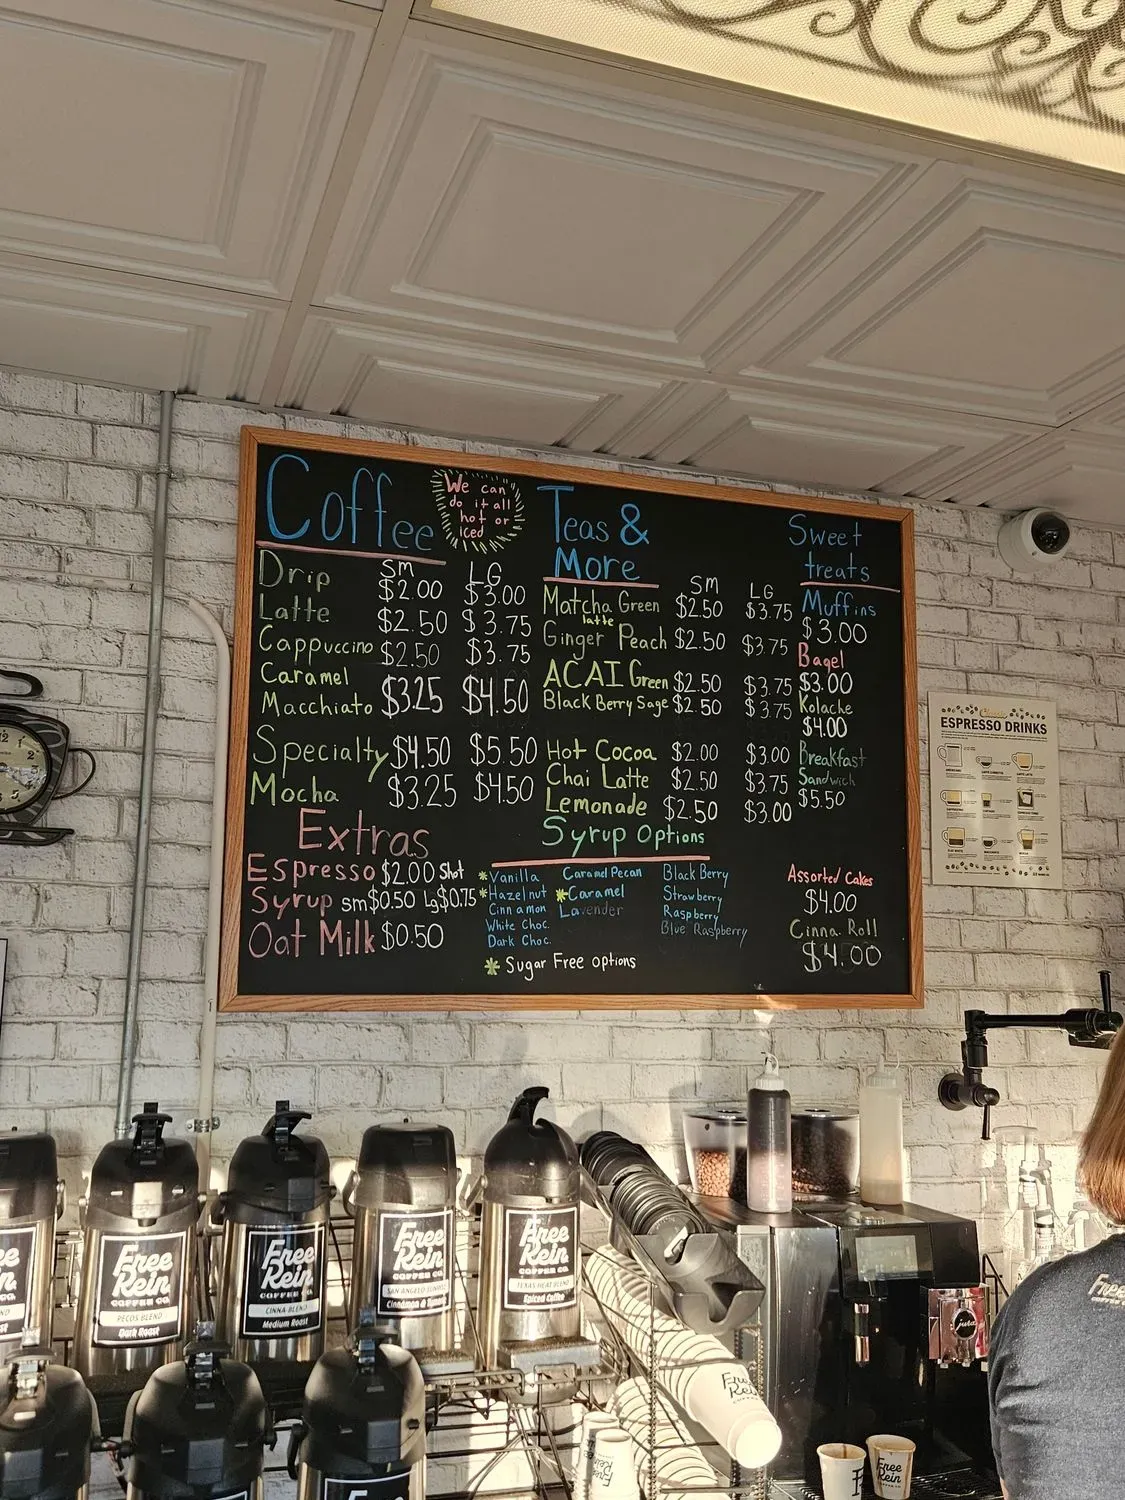 Coffee
We can
do it all
hot or
iced
SM LG
Drip $2.00 $3.00
Latte $2.50 $3.75
Cappuccino $2.50 $3.75
Caramel
Macchiato $3.25 $4.50
Specialty $4.50 $5.50
Mocha $3.25 $4.50
Extras
Espresso $2.00 Shot
Syrup sm $0.50 Lg $0.75
Oat Milk $0.50
Teas &
More
SM LG
Matcha Green $2.50 $3.75
latte
Ginger Peach $2.50 $3.75
ACAI Green $2.50 $3.75
Black Berry Sage $2.50 $3.75
Hot Cocoa $2.00 $3.00
Chai Latte $2.50 $3.75
Lemonade $2.50 $3.00
Syrup Options
*Vanilla
*Hazelnut
Cinnamon
White Choc.
Dark Choc.
Caramel Pecan
*Caramel
Lavender
Black Berry
Strawberry
Raspberry
Blue Raspberry
* Sugar Free options
Sweet
treats
Muffins
$3.00
Bagel
$3.00
Kolache
$4.00
Breakfast
Sandwich
$5.50
Assorted Cakes
$4.00
Cinna. Roll
$4.00
ESPRESSO DRINKS
Free
Rein
COFFEE CO.
PECOS BLEND
Dark Roast
Free
Rein
COFFEE CO.
CINNA-BLEND
Medium Roast
Free
Rein
COFFEE CO.
Free
Rein
COFFEE CO.
TEXAS HEAT BLEND
Spiced Coffee
jura
Free
Rein
Free
Rein
Free